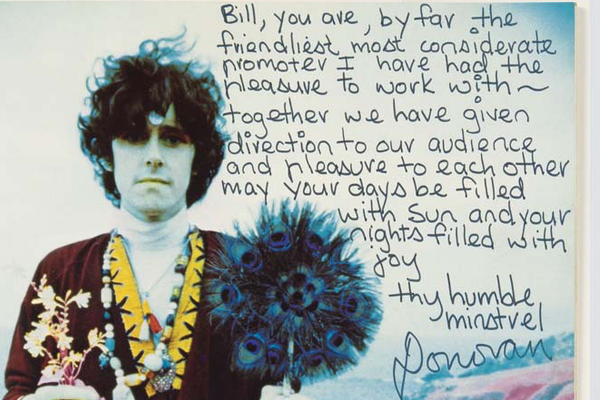 Bill, you are, by far the
friendliest most considerate
promoter I have had the
pleasure to work with~
together we have given
direction to our audience
and pleasure to each other
may your days be filled
with Sun and your
nights filled with
joy
thy humble
minstrel
Donovan